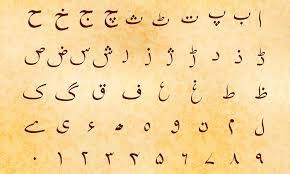 ا ب پ ت ٹ ث چ ج خ ح
ڈ د ذ ڑ ژ ز ر ش س ض ص
ظ ط ع غ ف ق گ ک
ل م ن و ہ ء ی ے
۰ ۱ ۲ ۳ ۴ ۵ ۶ ۷ ۸ ۹